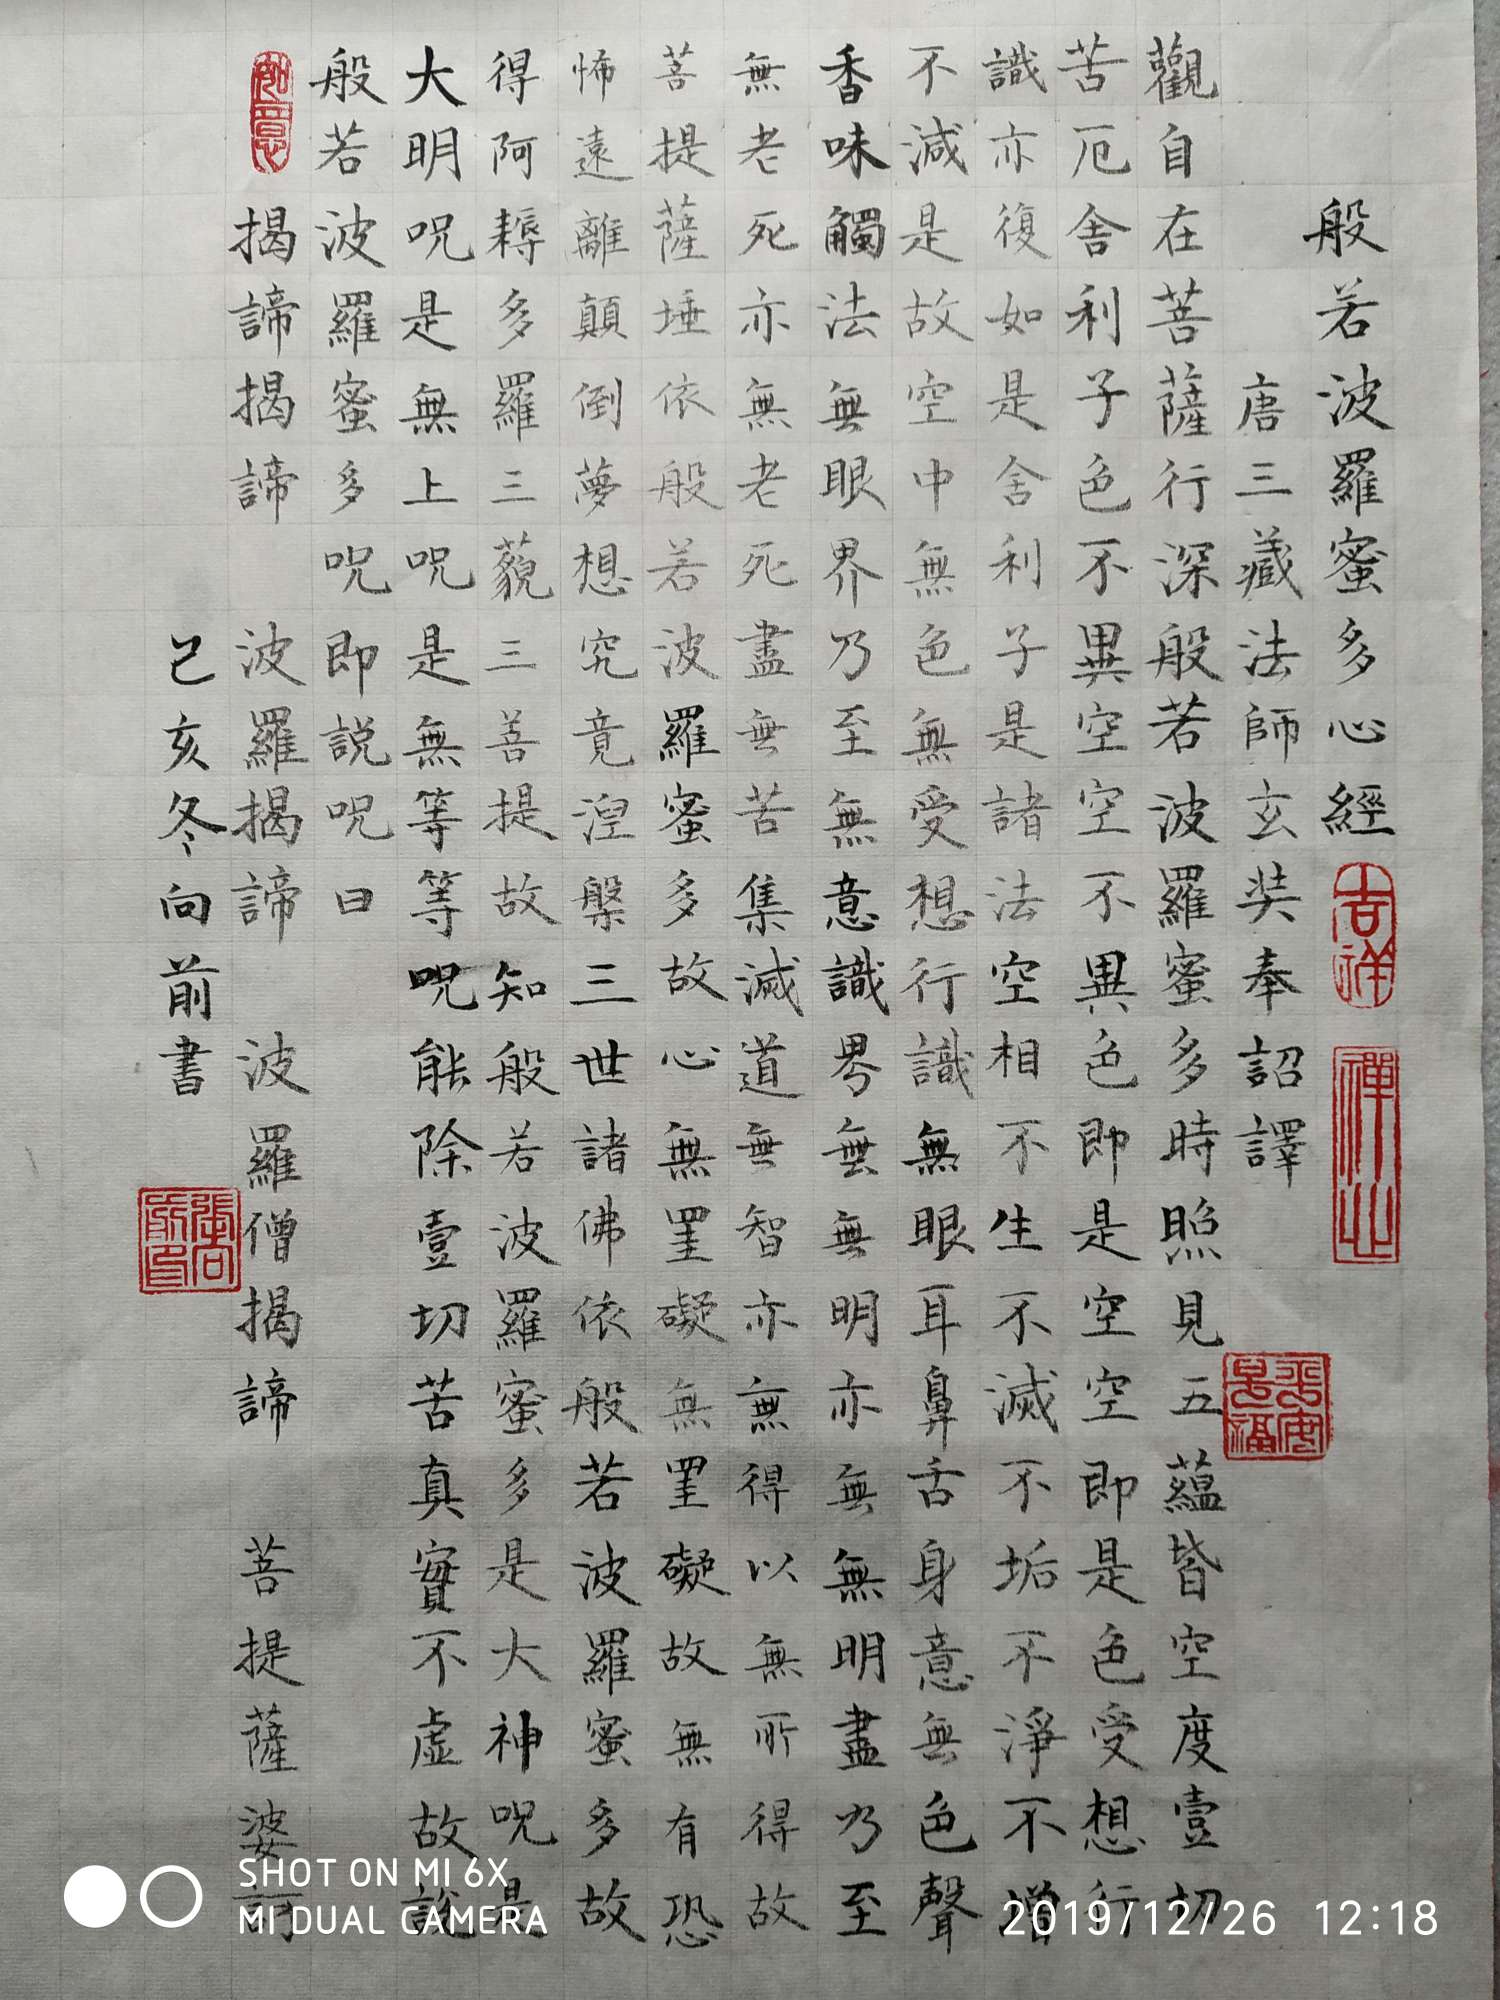 般若波羅蜜多心經
吉祥
禪心
唐三藏法師玄奘奉詔譯
平安是福
觀自在菩薩行深般若波羅蜜多時照見五蘊皆空度壹切
苦厄舍利子色不異空空不異色色即是空空即是色受想行
識亦復如是舍利子是諸法空相不生不滅不垢不淨不增
不減是故空中無色無受想行識無眼耳鼻舌身意無色聲
香味觸法無眼界乃至無意識界無無明亦無無明盡乃至
無老死亦無老死盡無苦集滅道無智亦無得以無所得故
菩提薩埵依般若波羅蜜多故心無罣礙無罣礙故無有恐
怖遠離顛倒夢想究竟涅槃三世諸佛依般若波羅蜜多故
得阿耨多羅三藐三菩提故知般若波羅蜜多是大神呪是
大明呪是無上呪是無等等呪能除壹切苦真實不虛故說
般若波羅蜜多呪即説呪曰
如意
揭諦揭諦 波羅揭諦 波羅僧揭諦 菩提薩婆訶
己亥冬向前書
SHOT ON MI 6X
MI DUAL CAMERA
2019/12/26 12:18